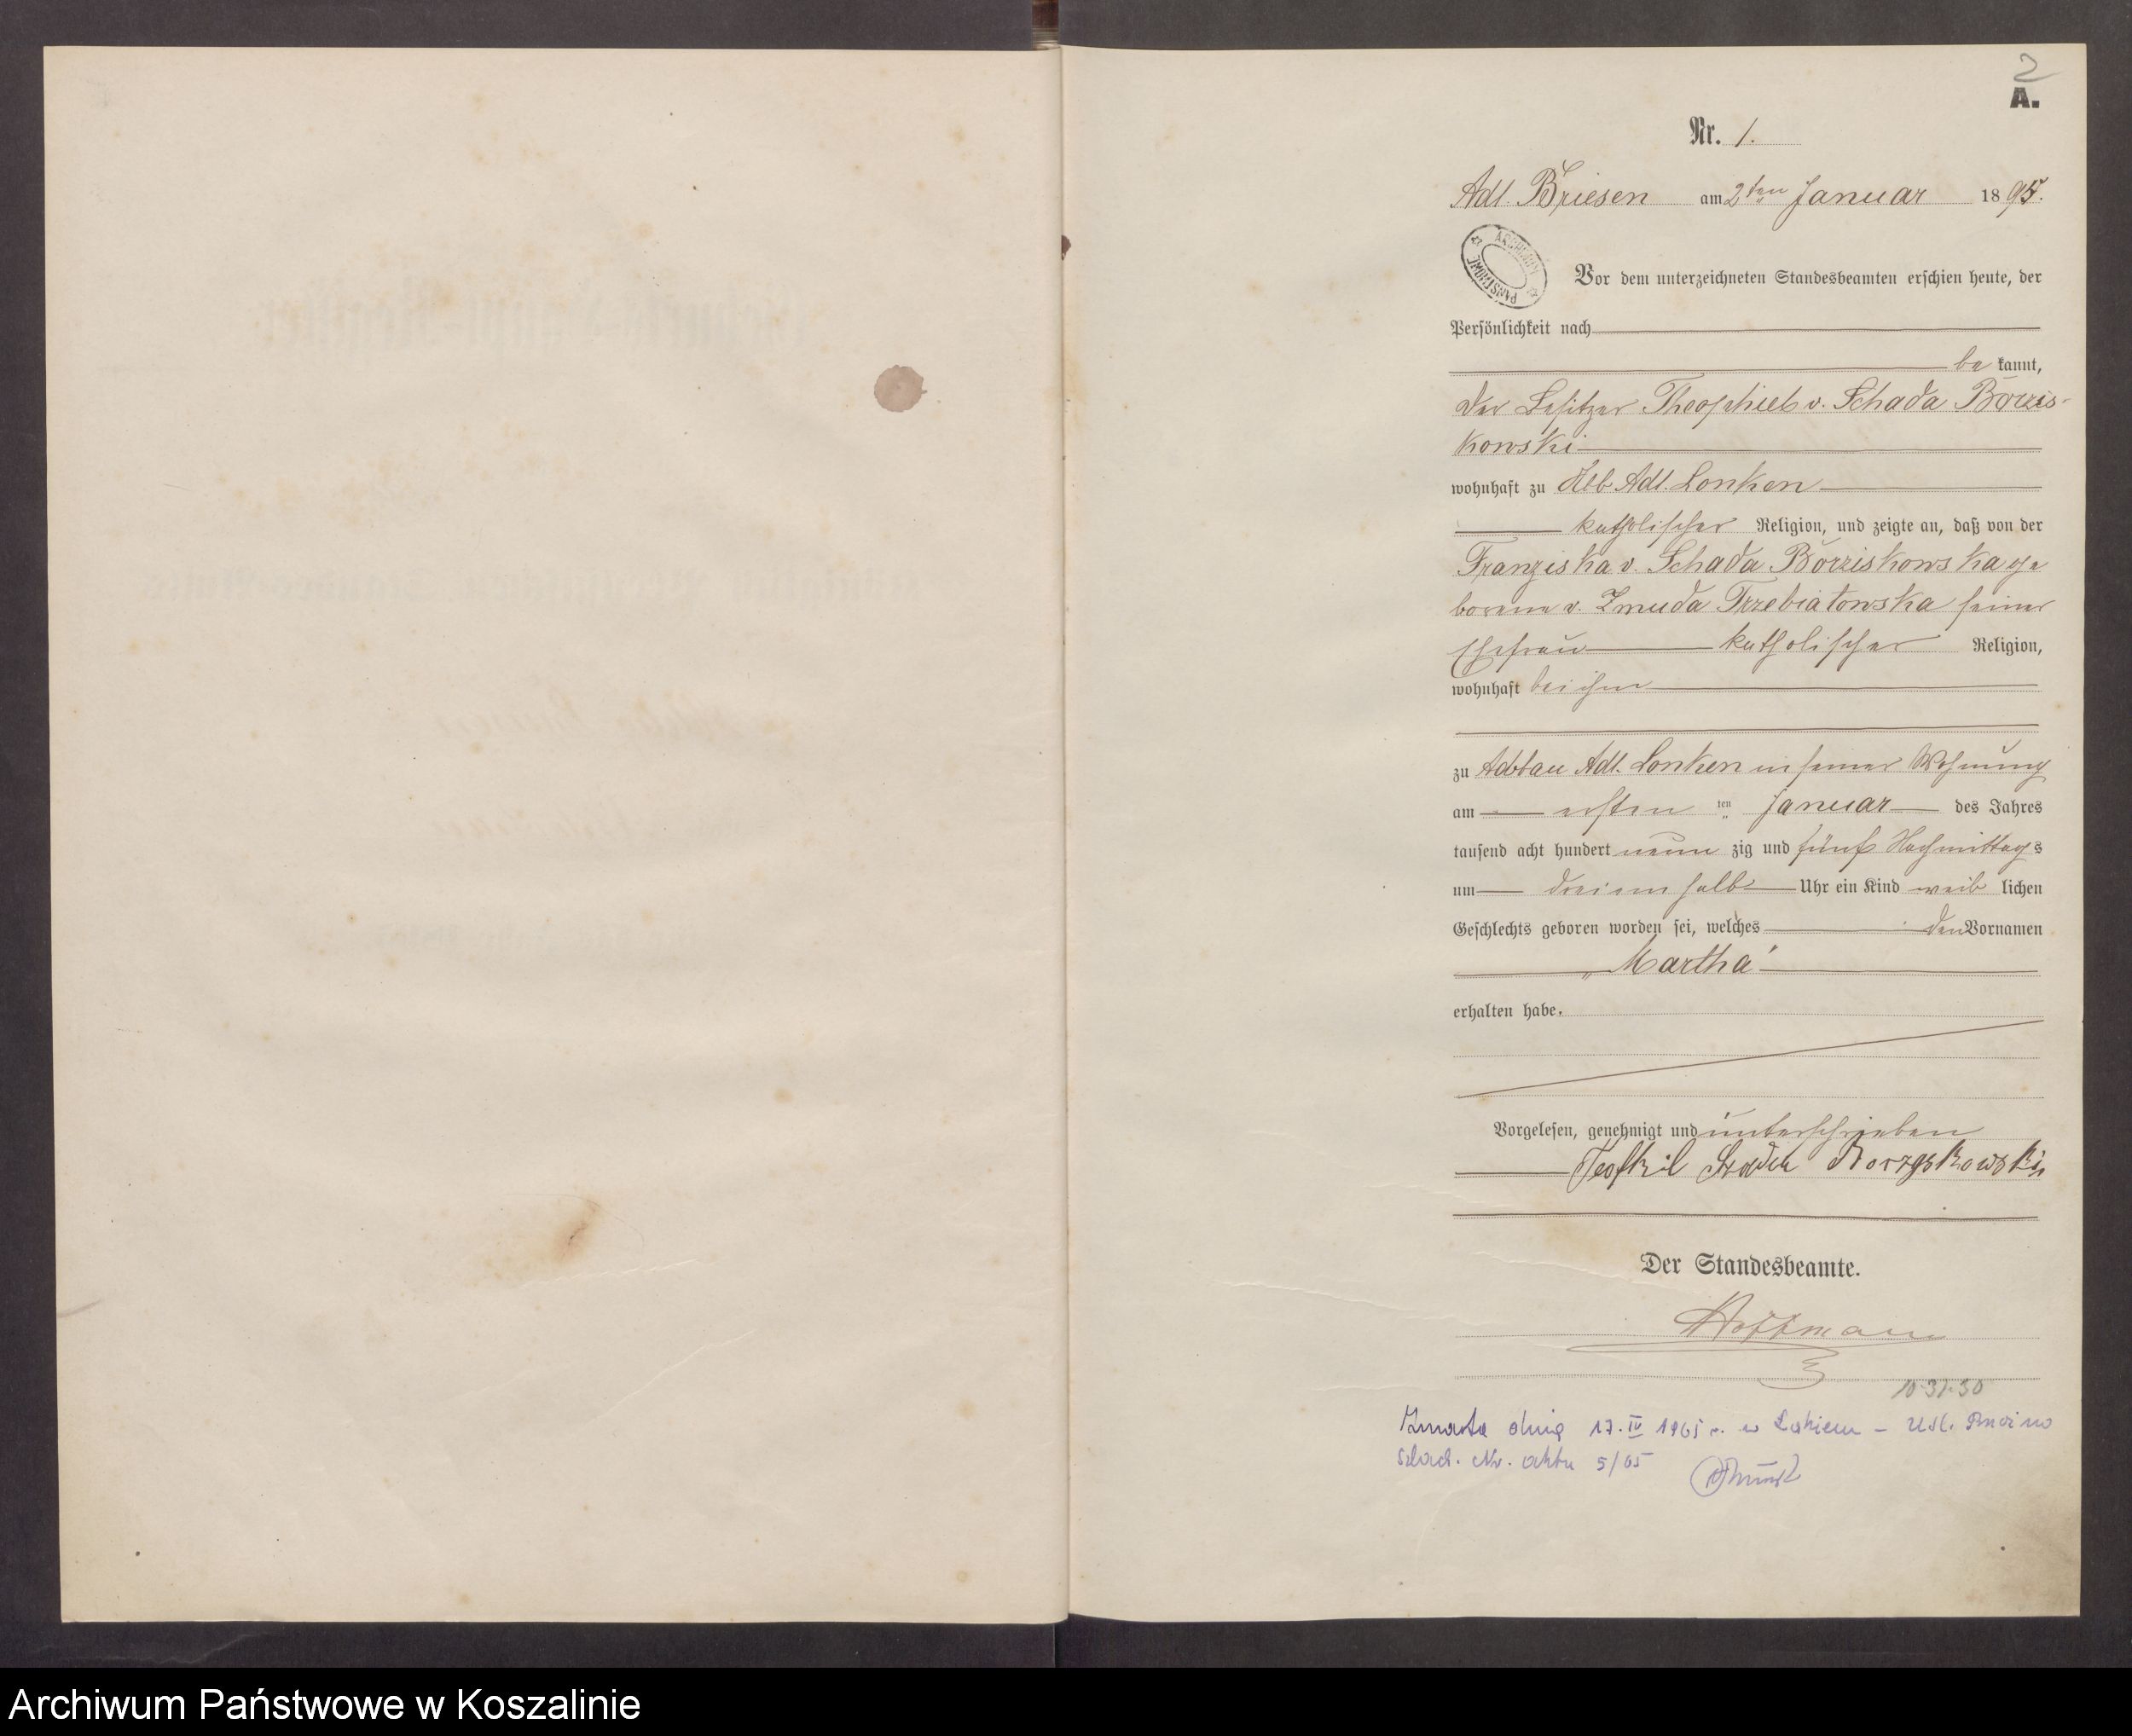 2
A.
Nr. 1.
Adl. Briesen am 2ten Januar 1895.
ARCHIWUM PAŃSTWOWE
Vor dem unterzeichneten Standesbeamten erschien heute, der
Persönlichkeit nach
be kannt,
der Besitzer Theophiel v. Schada Borzis-
kowski
wohnhaft zu Abb. Adl. Lonken
katholischer Religion, und zeigte an, daß von der
Franziska v. Schada Borziskowska ge
borene v. Zmuda Trzebiatowska seiner
Ehefrau katholischer Religion,
wohnhaft bei ihm
zu Abbau Adl. Lonken in seiner Wohnung
am ersten ten Januar des Jahres
tausend acht hundert neun zig und fünf Nachmittags
um dreieinhalb Uhr ein Kind weib lichen
Geschlechts geboren worden sei, welches den Vornamen
„Martha"
erhalten habe.
Vorgelesen, genehmigt und unterschrieben
Teofhil Borzyskowski
Der Standesbeamte.
Hoffmann
10-31-30
Zmarła dnia 17. IV 1965 r. w - USC.
Szlach. Nr. aktu 5/65
Archiwum Państwowe w Koszalinie